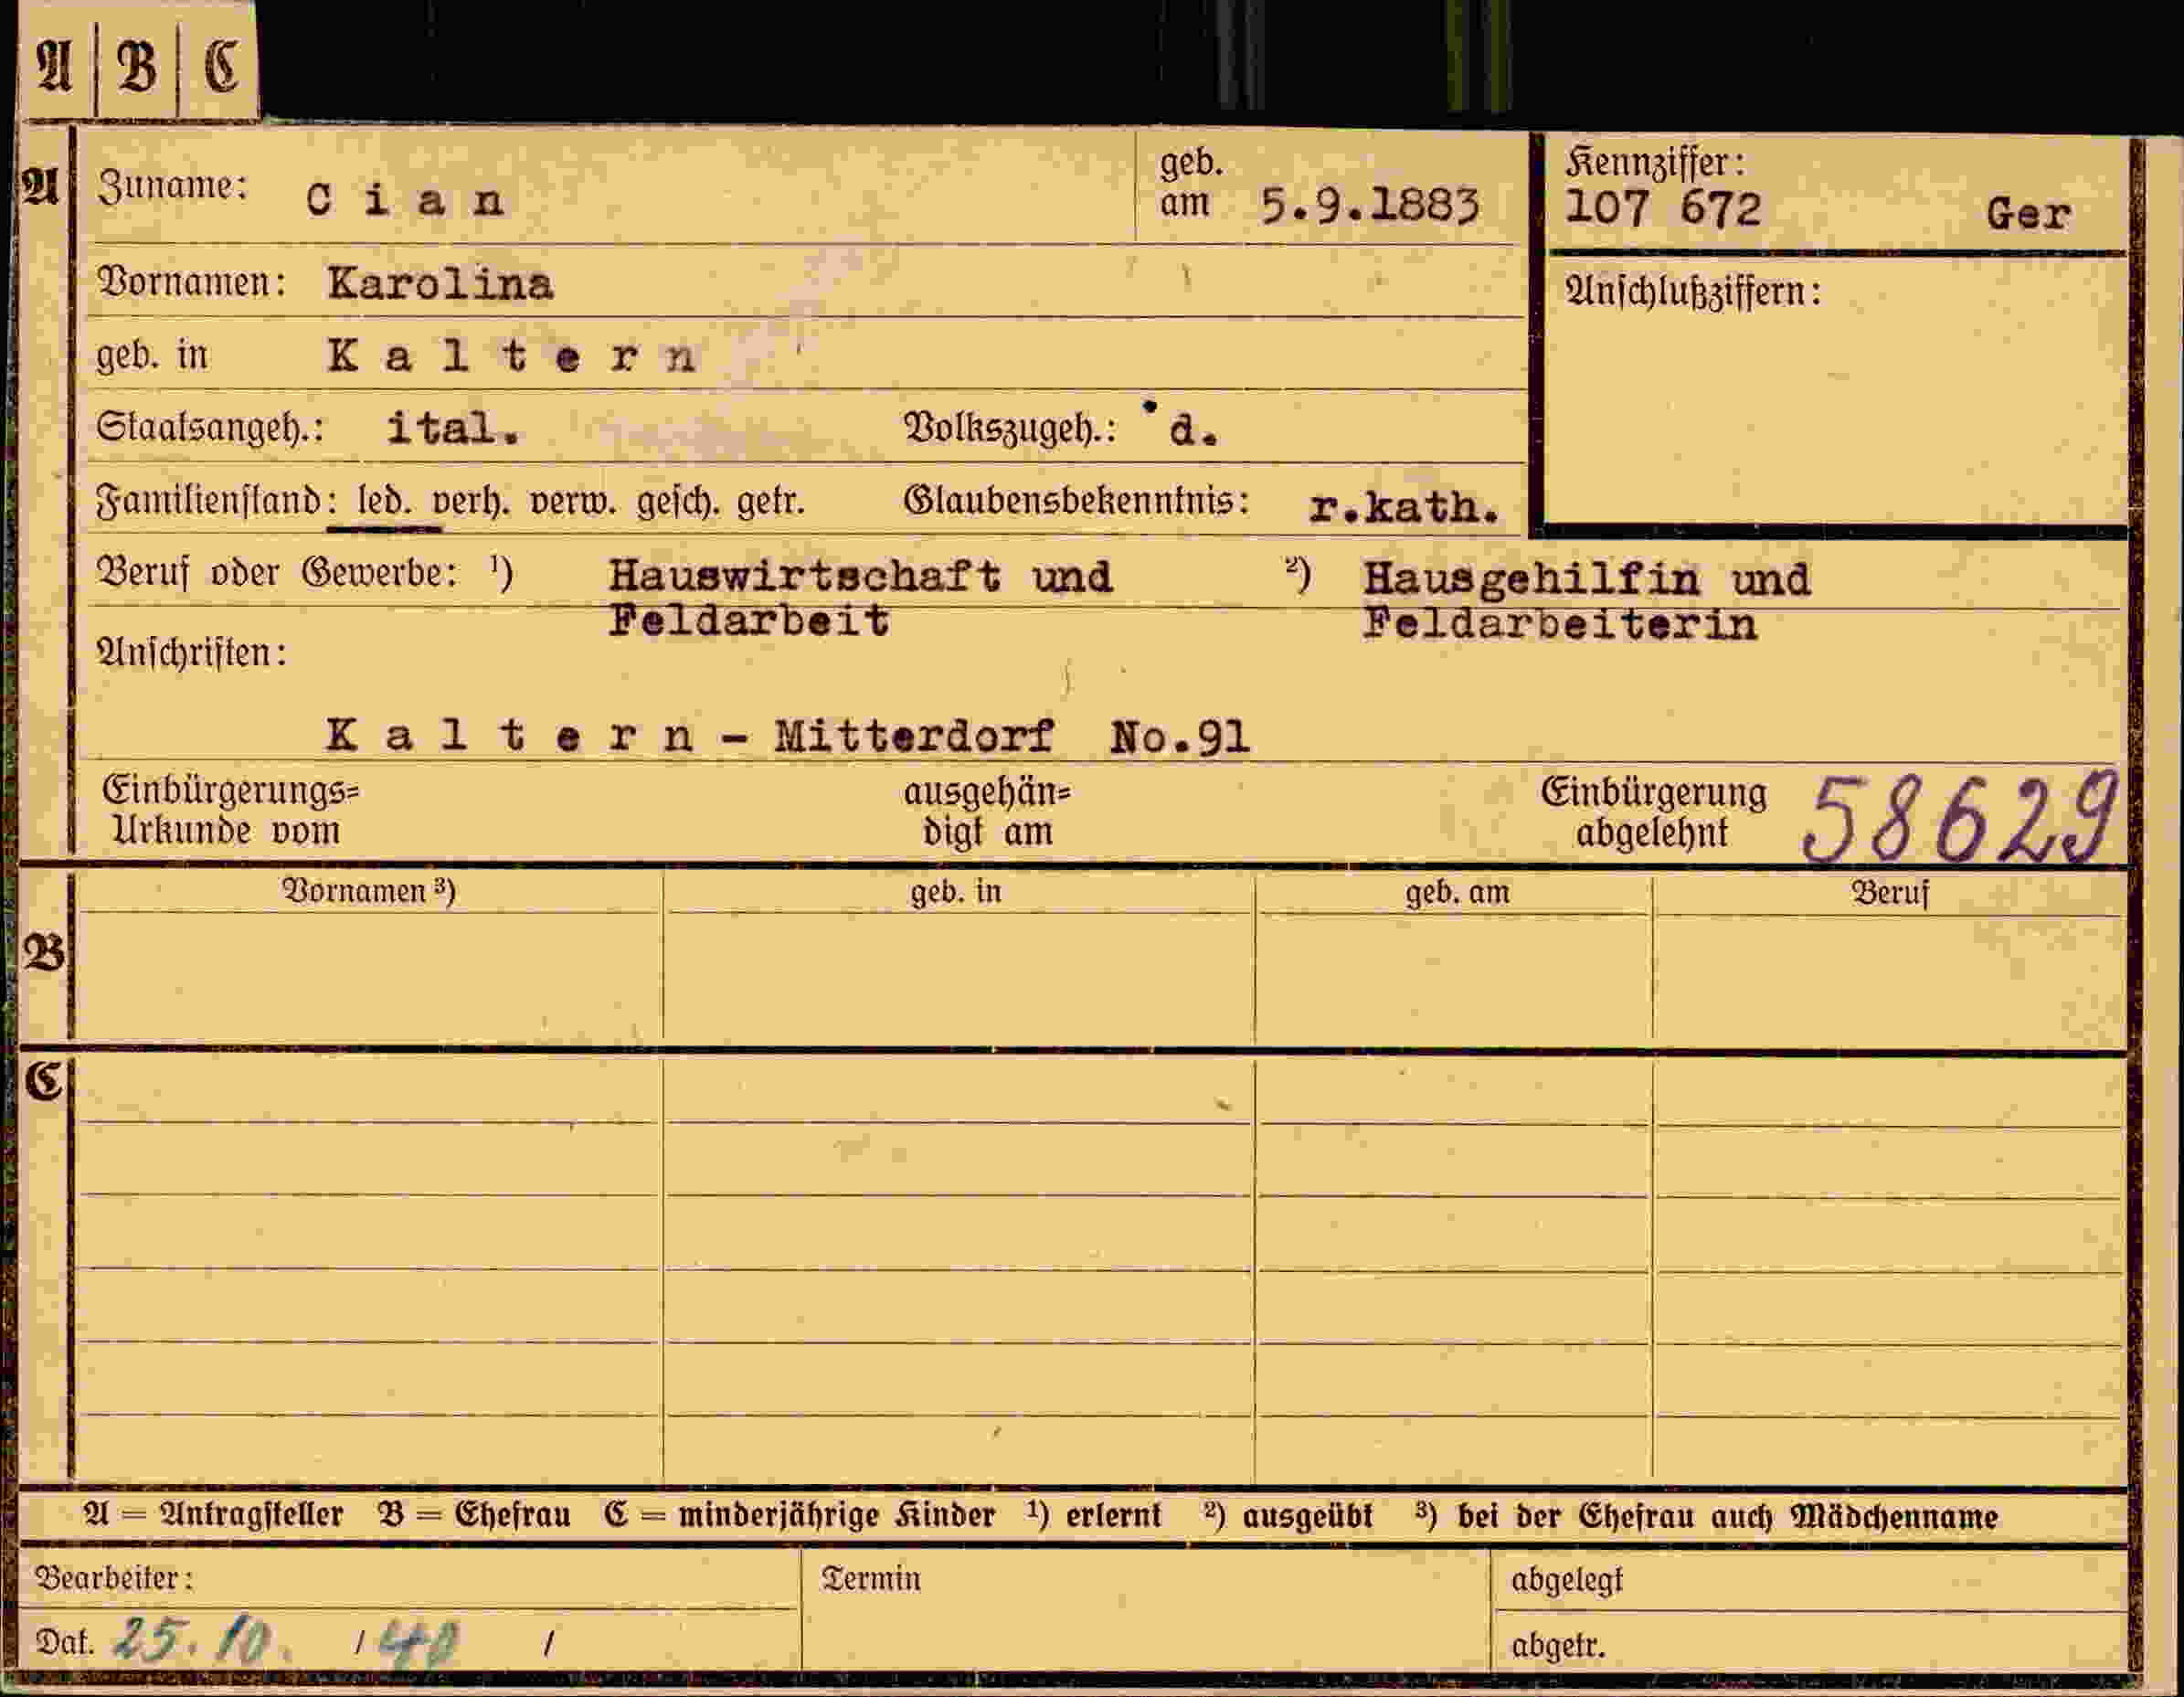 A B C
A Zuname: C i a n geb. am 5.9.1883
Kennziffer: 107 672 Ger
Vornamen: Karolina
Anschlußziffern:
geb. in K a l t e r n
Staatsangeh.: ital. Volkszugeh.: d.
Familienstand: led. verh. verw. gesch. getr. Glaubensbekenntnis: r.kath.
Beruf oder Gewerbe: ¹) Hauswirtschaft und ²) Hausgehilfin und
Feldarbeit Feldarbeiterin
Anschriften:
K a l t e r n - Mitterdorf No.91
Einbürgerungs= ausgehän= Einbürgerung 58629
Urkunde vom digt am abgelehnt
Vornamen ³) geb. in geb. am Beruf
B
C
A = Antragsteller B = Ehefrau C = minderjährige Kinder ¹) erlernt ²) ausgeübt ³) bei der Ehefrau auch Mädchenname
Bearbeiter: Termin abgelegt
Dat. 25.10. / 40 / abgetr.